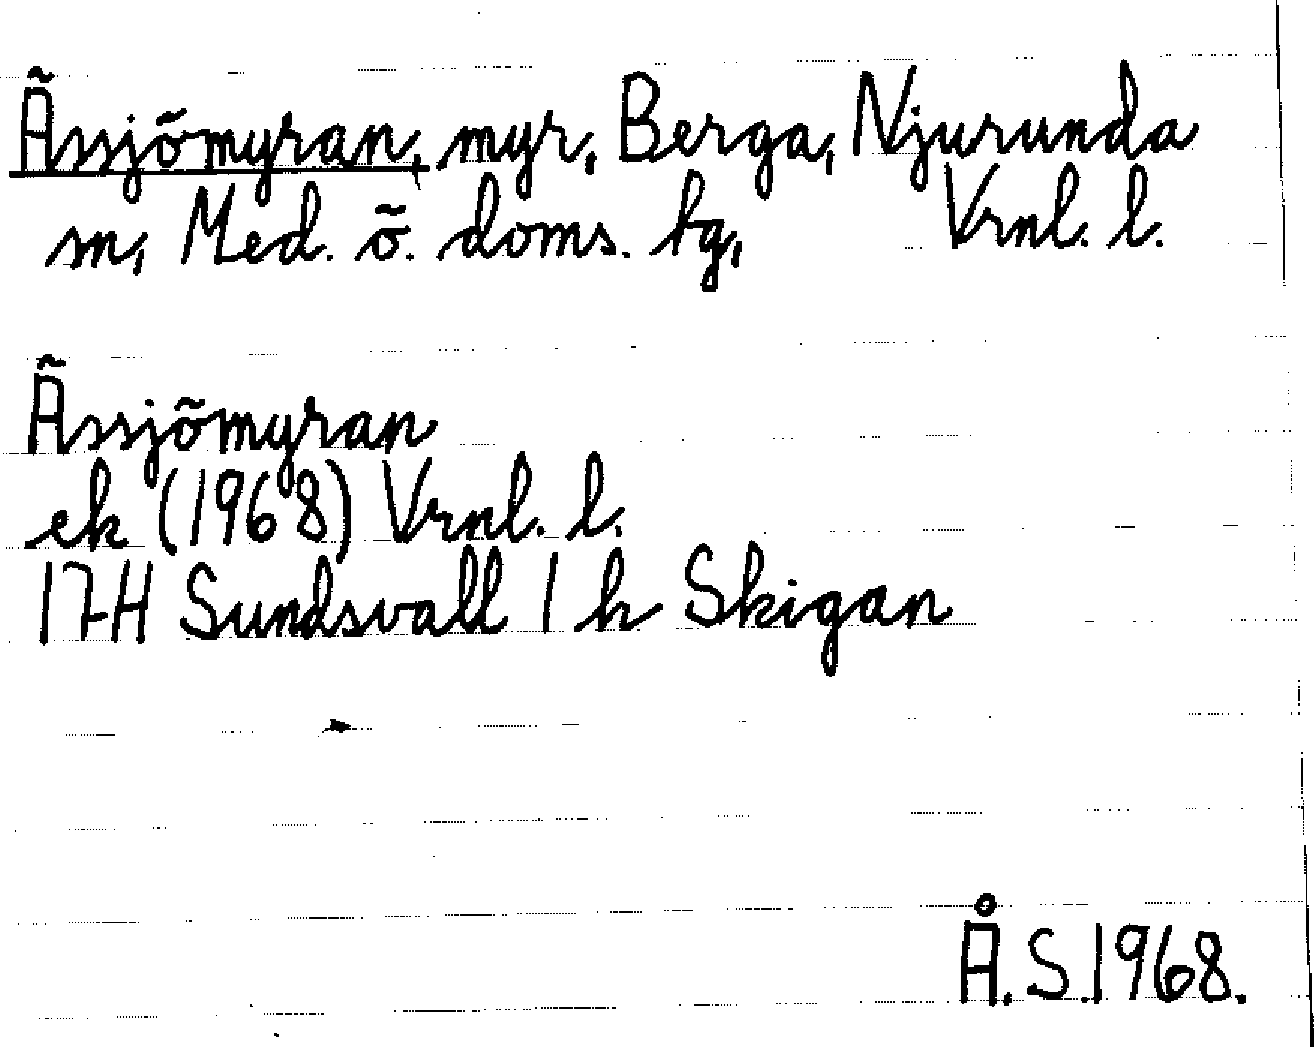 Ässjömyran, myr, Berga, Njurunda
sn, Med. ö. doms. tg, Vrnl. l.
Ässjömyran
ek (1968) Vrnl. l.
17H Sundsvall 1 h Skigan
Å.S.1968.